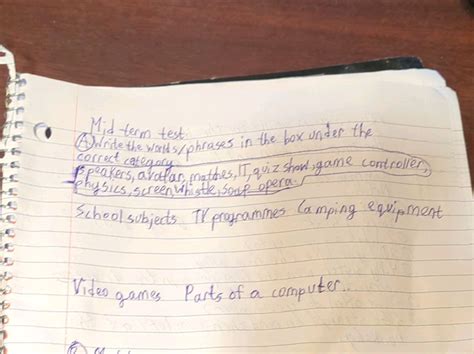 Mid-term test
(A) Write the words/phrases in the box under the
correct category
Speakers, avatar, mathes, IT, quiz show, game controller,
physics, screen, whistle, soap opera.
School subjects TV programmes Camping equipment
Video games Parts of a computer..